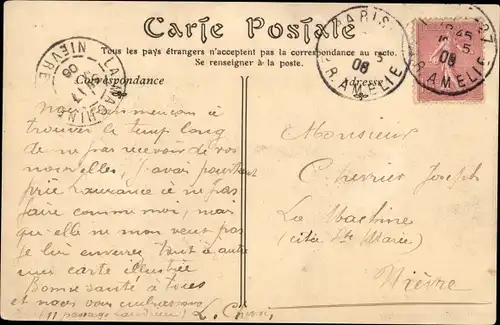 Carte Postale
Tous les pays étrangers n'acceptent pas la correspondance au recto.
Se renseigner à la poste.
Correspondance
Adresse
PARIS
R. AMELIE
08
27
R. AMELIE
08
LA MACHINE
NIÈVRE
08
Nous commençons à
trouver le temps long
de ne pas recevoir de vos
nouvelles, j'avais pourtant
prié Laurance à ne pas
faire comme moi, mais
que elle ne m'en veut pas
je lui enverrai tout à autre
une carte illustrée
Bonne santé à tous
et nous vous embrassons
(11 passage
L.
Monsieur
Chevrier Joseph
La Machine
(cité Ste Marie)
Nièvre